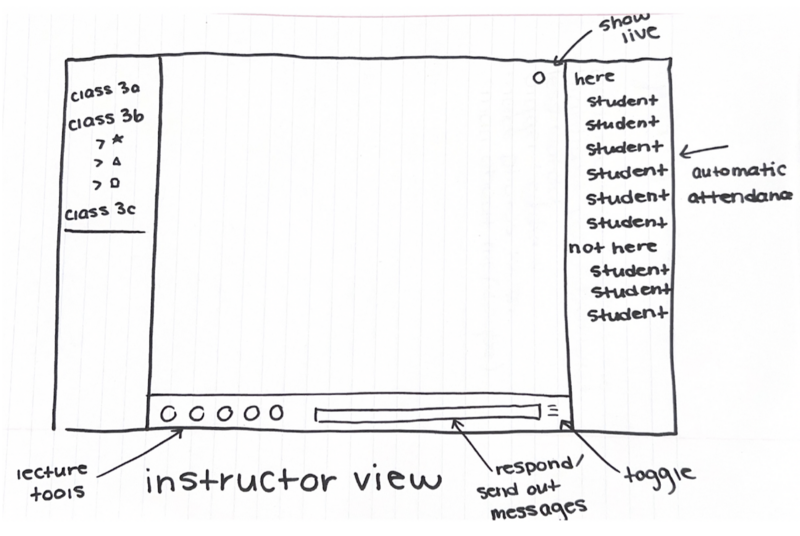 show
live
class 3a
class 3b
> ☆
> △
> □
class 3c
here
student
student
student
student
student
student
not here
student
student
student
automatic
attendance
lecture
tools
instructor view
respond/
send out
messages
toggle